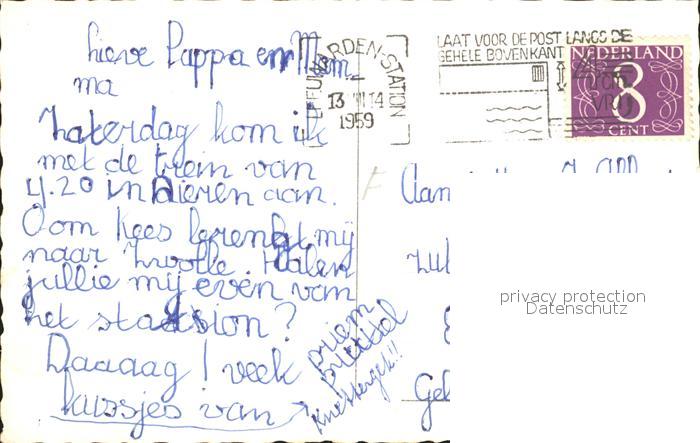 lieve Pappa en Mom
ma
Zaterdag kom ik
met de trein van
4.20 in Dieren aan.
Oom Kees berengt mij
naar Zwolle. Halen
jullie mij even van
het station?
Daaaag! veek
kussjes van
LEEUWARDEN-STATION
13 VII 14
1959
LAAT VOOR DE POST LANGS DE
GEHELE BOVENKANT
NEDERLAND
8
CENT
Aan
Zut
Gel
privacy protection
Datenschutz